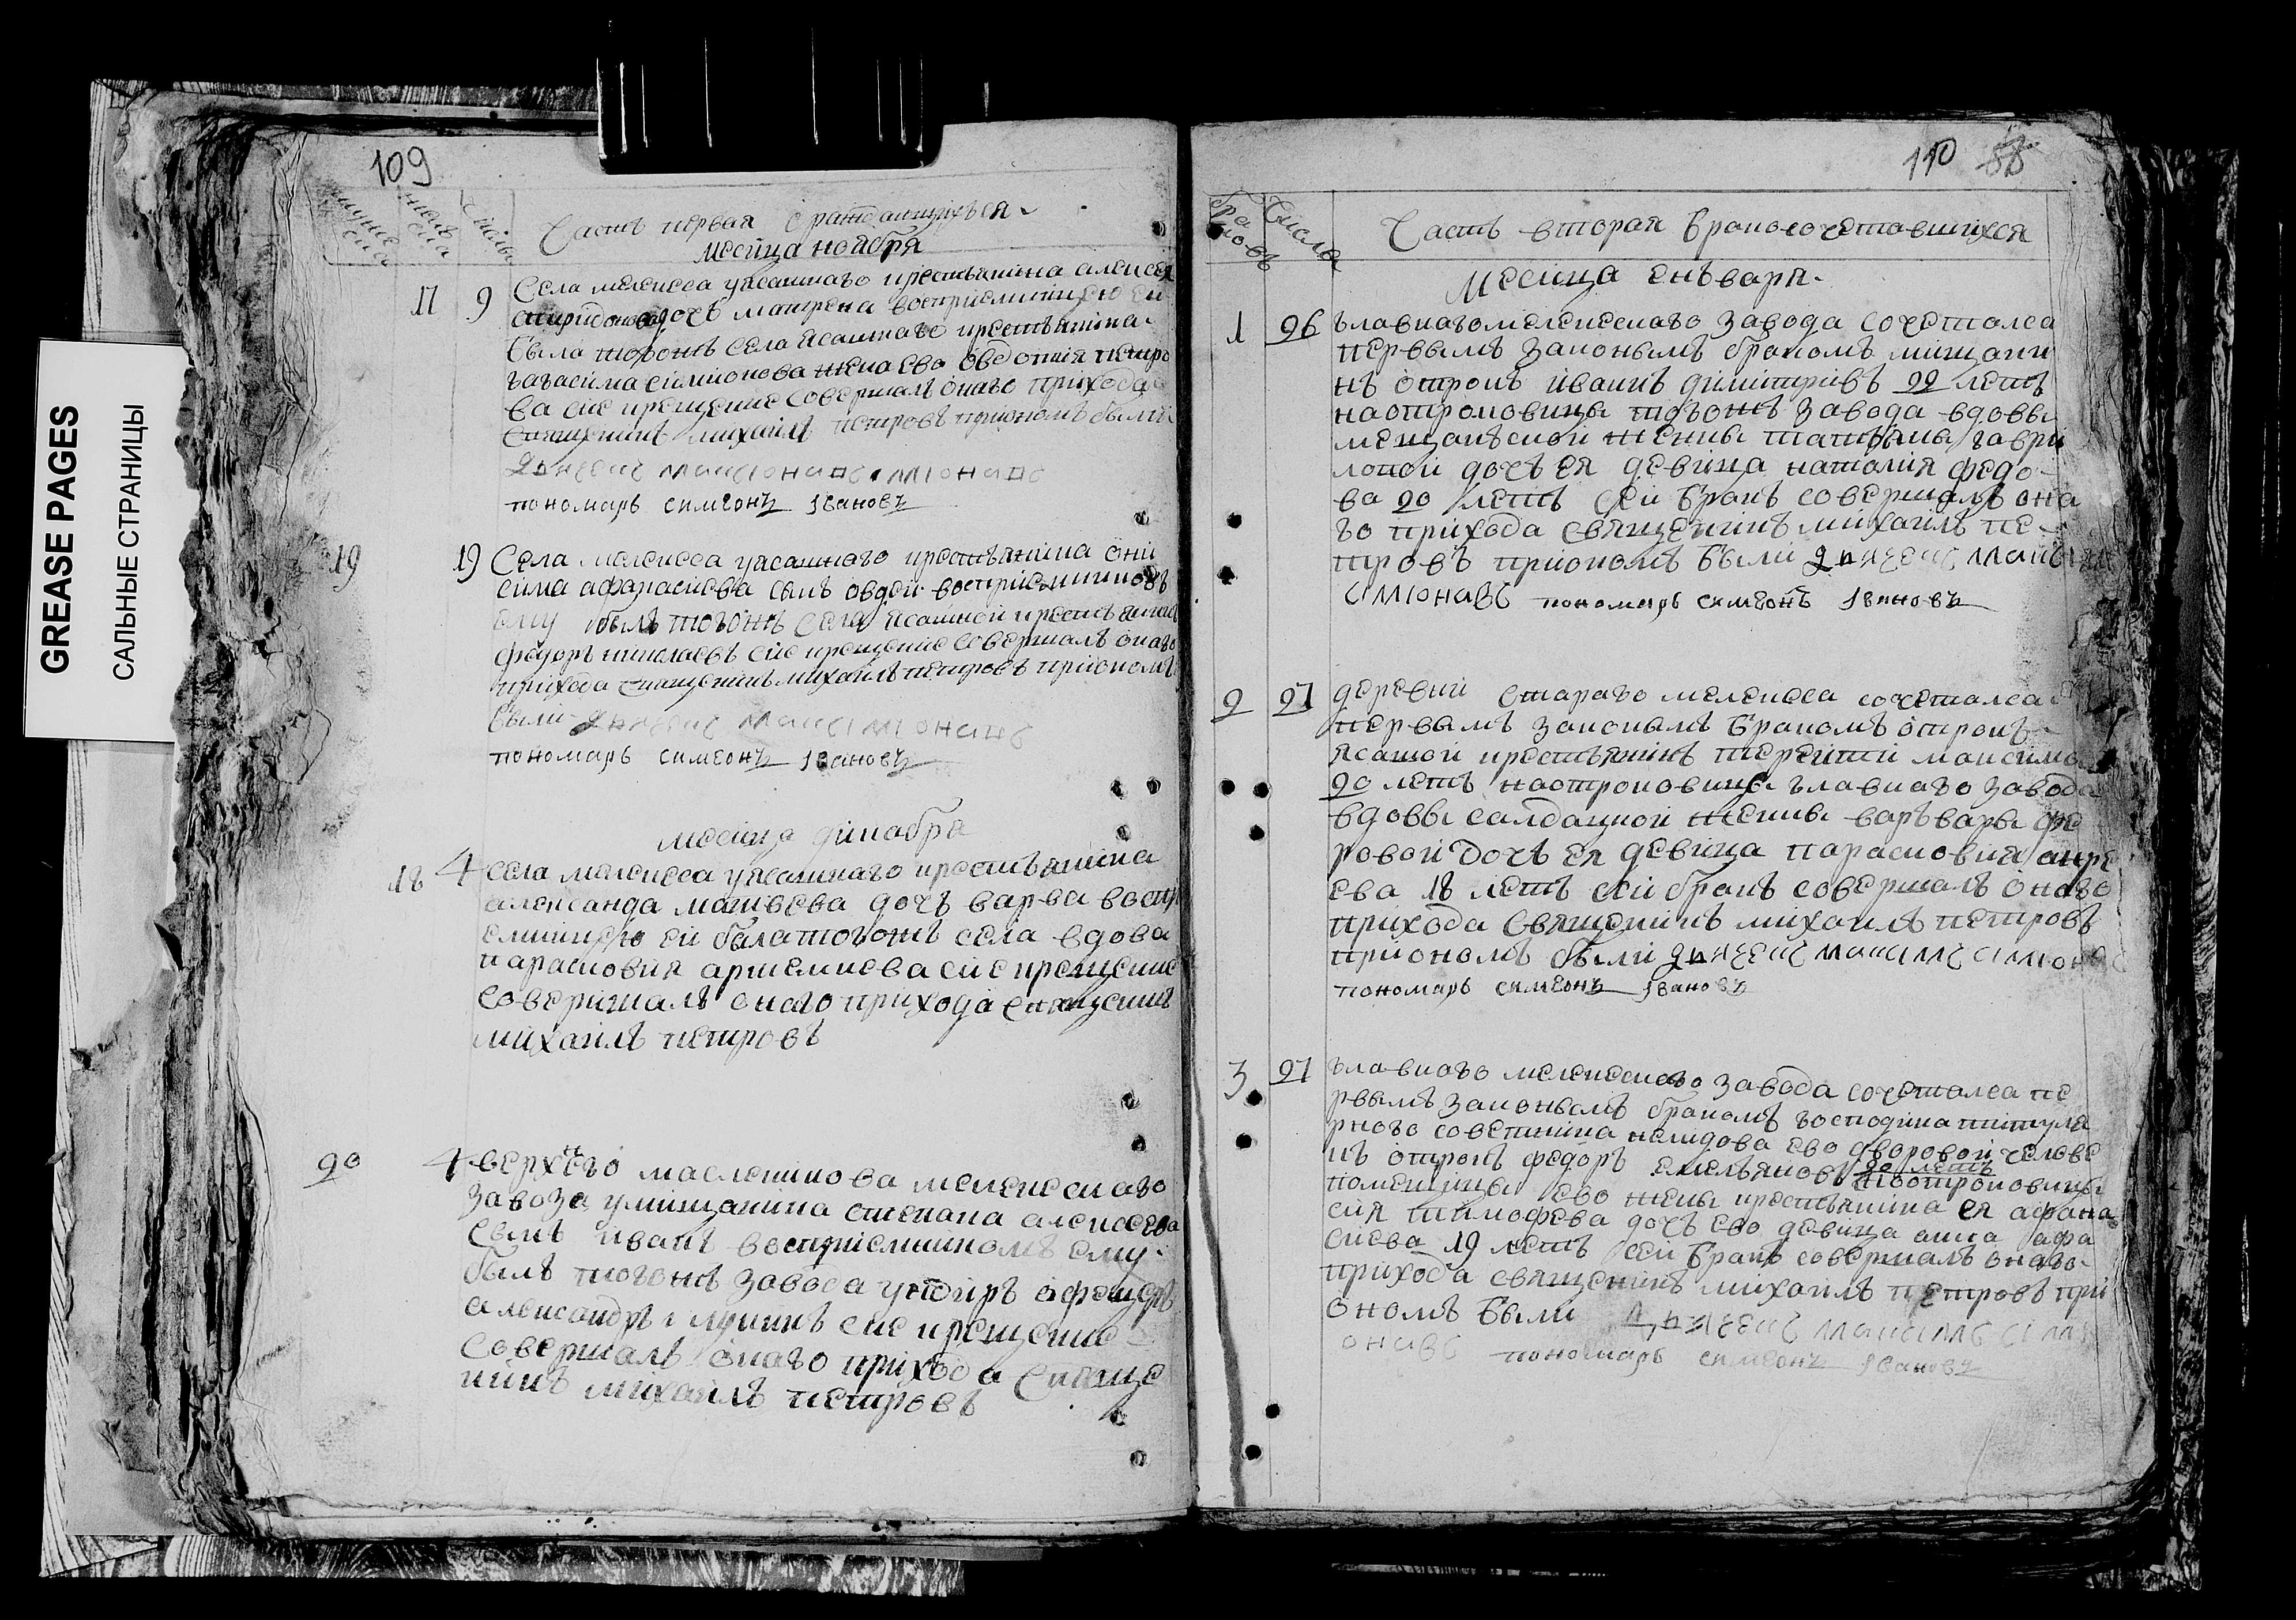 GREASE PAGES
САЛЬНЫЕ СТРАНИЦЫ
109
Часть первая о раждающихся
месица ноября
17 9 Села мелекеса уясашнаго крестьянина алексея
дочь матрена восприемницею ей
была тогожъ села ясашнаго крестьянина
гарасима симионова жена ево овдотия петро
ва сие крещение совершалъ онаго прихода
священикъ михаилъ петровъприономъ были
пономарь симеонъ Iвановъ
19 19 Села мелекеса уясашнаго крестьянина они
сима афанасиева сынъ овдей восприемникомъ
ему былъ тогожъ села ясашной крестьянинъ
федоръ николаевъ сие крещение совершалъ онаго
прихода священикъ михаилъ петровъ приономъ
были
пономарь симеонъ Iвановъ
месица дикабря
18 4 села мелекеса уясашнаго крестьянина
александа матвева дочь варва воспр
емницею ей была тогожъ села вдова
парасковия артемиева сие крещение
совершалъ онаго прихода священикъ
михаилъ петровъ
20 4 верхнего масленикова мелекескаго
завоза умищанина степана алексеева
сынъ иванъ восприемникомъ ему
былъ тогожъ завода ундиръ афецеръ
александръ сие крещение
совершалъ онаго прихода свяще
никъ михаилъ петровъ
110 88
браковъ Числы
Часть вторая бракосочетавшихся
Месица енъваря
1 26 главнагомелекескаго завода сочеталса
первымъ законымъ бракомъ мищани
нъ отрокъ иванъ димитривъ 22 летъ
наотроковицы тогожъ завода вдовы
мещанъской жены татьяны гаври
ловой дочь ея девица наталия федо
ва 20 летъ сей бракъ совершалъ она
го прихода священикъ михаилъ пе
тровъ приономъ были дьячекъ максимъ
симионавъ пономарь симеонъ Iвановъ
2 27 деревни стараго мелекеса сочеталса
первымъ законымъ бракомъ отрокъ
ясашой крестьянинъ терентей максимо
20 летъ наотроковице главнаго завода
вдовы салдацкой жены варъвары фе
ровой дочь ея девица парасковия анре
ева 18 летъ сей бракъ совершалъ онаго
прихода священикъ михаилъ петровъ
приономъ были дьячекъ максимъ симионавъ
пономарь симеонъ Iвановъ
3 27 главнаго мелекескаго завода сочеталса пе
рвымъ законымъ бракомъ господина титуля
рного советника нелидова ево дворовой челове
къ отрокъ федоръ емельяновъ 20 летъ наотроковицы
помещицы ево жены крестьянина ея афана
сия тимофева дочь ево девица анна афа
сиева 19 летъ сей бракъ совершалъ онаго
прихода священикъ михаилъ петровъ при
ономъ были дьячекъ максимъ сими
онавъ пономарь симеонъ Iвановъ